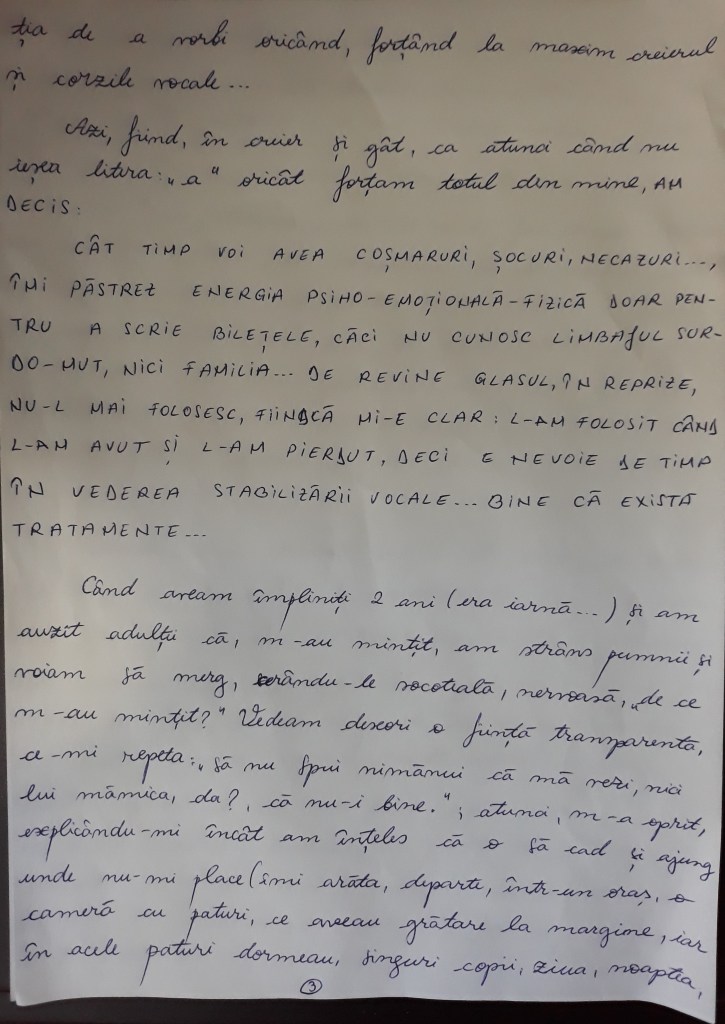 ția de a vorbi oricând, forțând la maxim creierul
și corzile vocale...
Azi, fiind, în creier și gât, ca atunci când nu
ieșea litira: „a" oricât forțam totul din mine, AM
DECIS:
CÂT TIMP VOI AVEA COȘMARURI, ȘOCURI, NECAZURI...,
ÎMI PĂSTREZ ENERGIA PSIHO-EMOȚIONALĂ-FIZICĂ DOAR PEN-
TRU A SCRIE BILEȚELE, CĂCI NU CUNOSC LIMBAJUL SUR-
DO-MUT, NICI FAMILIA... DE REVINE GLASUL, ÎN REPRIZE,
NU-L MAI FOLOSESC, FIINDCĂ MI-E CLAR: L-AM FOLOSIT CÂND
L-AM AVUT ȘI L-AM PIERDUT, DECI E NEVOIE DE TIMP
ÎN VEDEREA STABILIZĂRII VOCALE... BINE CĂ EXISTĂ
TRATAMENTE...
Când aveam împliniți 2 ani (era iarnă...) și am
auzit adulții că, m-au mințit, am strâns pumnii și
voiam să merg, cerându-le socoteală, nervoasă, „de ce
m-au mințit?" Vedeam deseori o ființă transparentă,
ce-mi repeta: „să nu spui nimănui că mă vezi, nici
lui mămica, da?, că nu-i bine."; atunci, m-a oprit,
explicându-mi încât am înțeles că o să cad și ajung
unde nu-mi place (îmi arăta, departe, într-un oraș, o
cameră cu paturi, ce aveau grătare la margine, iar
în acele paturi dormeau, singuri copii, ziua, noaptea,
3